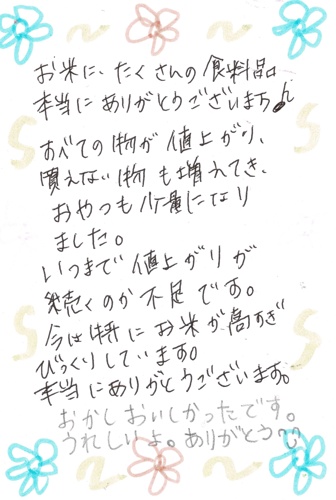 お米に、たくさんの食料品
本当にありがとうございます♪
すべての物が値上がり、
買えない物も増えてき、
おやつも少量になり
ました。
いつまで値上がりが
続くのか不足です。
今は特にお米が高すぎ
びっくりしています。
本当にありがとうございます。
おかしおいしかったです。
うれしいよ。ありがとう